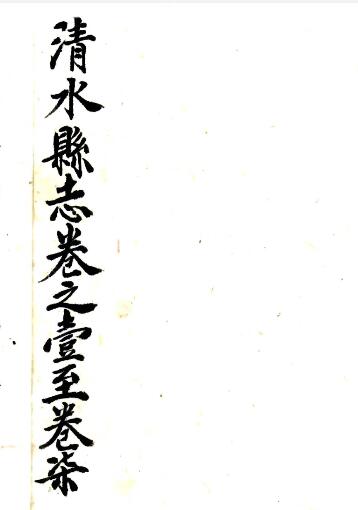 清水縣志卷之壹至卷柒